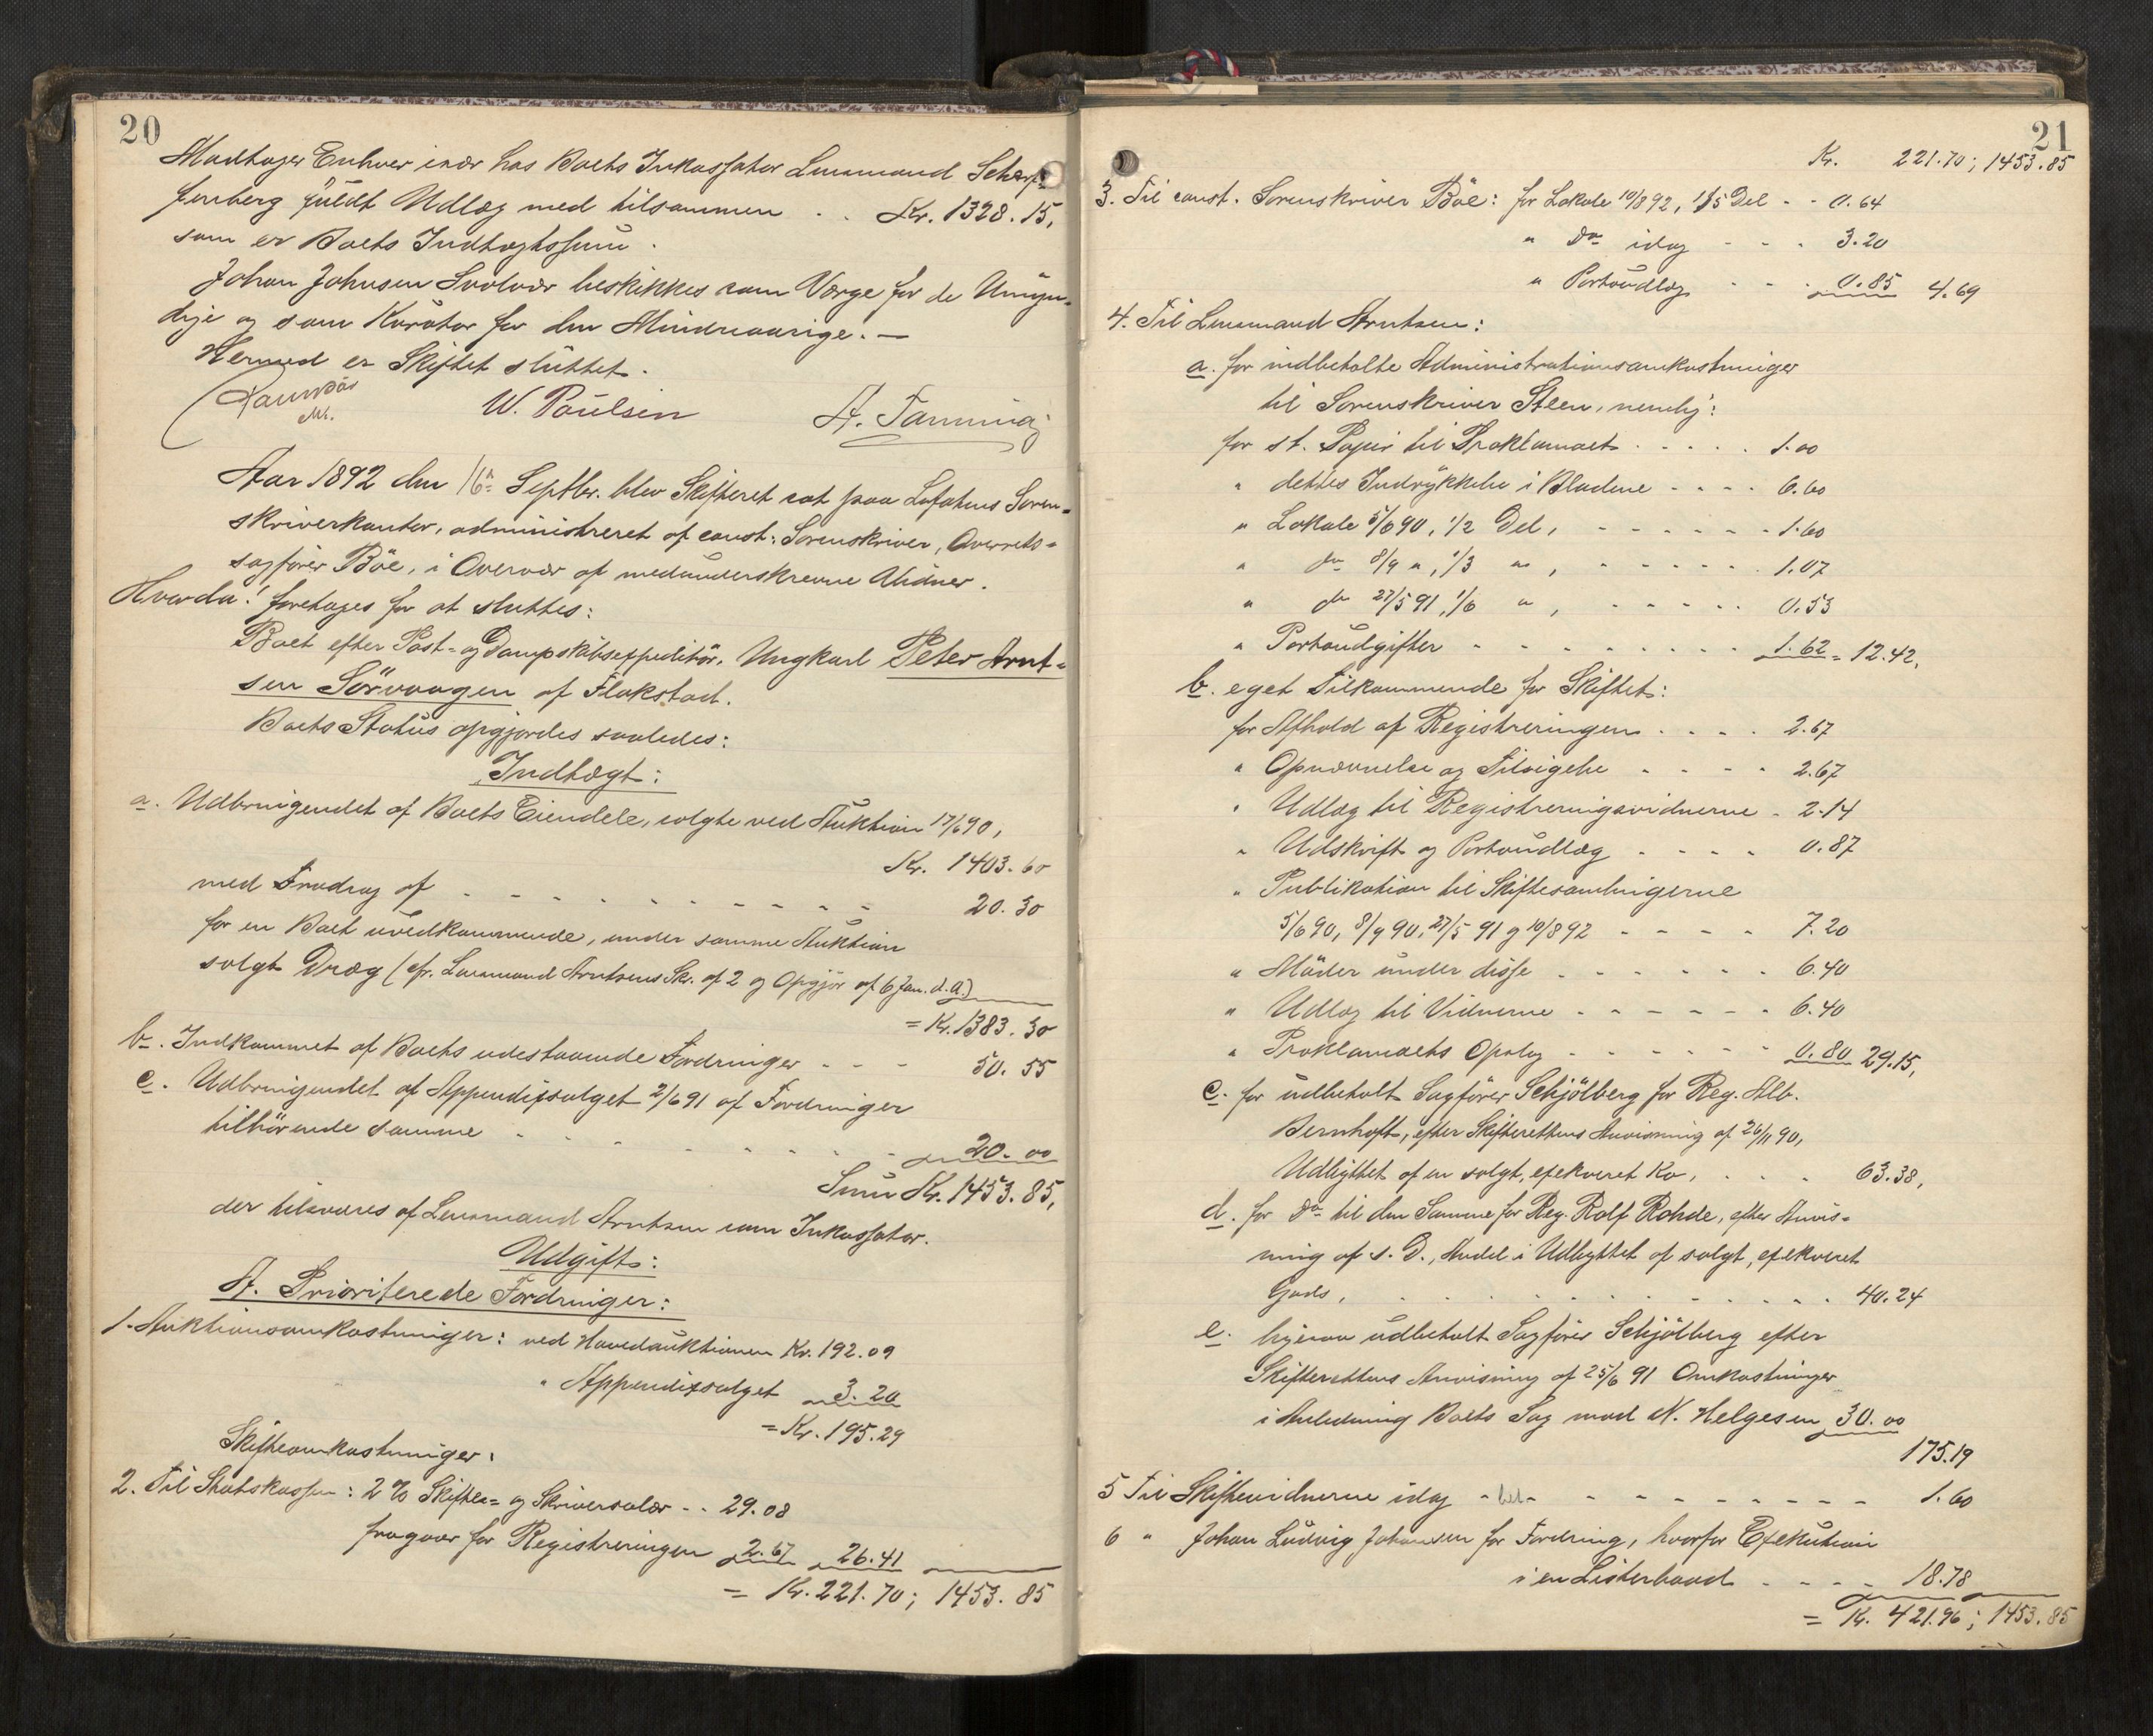 20
Modtager Enhver især hos Boets Inkassator Lensmand Scharf-
fenberg fuldt Udlæg med tilsammen . . Kr. 1328.15,
som er Boets Indtægtssum.
Johan Johnsen Svolvær beskikkes som Værge for de Umyn-
dige og som Kurator for den Mindreaarige. —
Hermed er Skiftet sluttet.
W. Paulsen A. Tanning
Aar 1892 den 16de Septbr. blev Skifteret sat paa Lofotens Soren-
skriverkontor, administreret af const. Sorenskriver, Overrets-
sagfører Böe, i Overvær af medunderskrevne Vidner.
Hvorda! foretages for at sluttes:
Boet efter Post- og Dampskibsexpeditör, Ungkarl Peter Arnt-
sen Sörvaagen af Flakstad.
Boets Status opgjordes saaledes:
Indtægt:
a. Udbringendet af Boets Eiendele, solgte ved Auktion 17/6 90,
Kr. 1403.60
med Fradrag af - - - - 20.30
for en Boet uvedkommende, under samme Auktion
solgt Dræg (cfr. Lensmand Arntsens Skr. af 2 og Opgjör af 6 Jan. d. A.)
= Kr. 1383.30
b. Indkommet af Boets udestaaende Fordringer - - - 50.55
c. Udbringendet af Appendixsalget 2/6 91 af Fordringer
tilhörende samme - - - - 20.00
Sum Kr. 1453.85,
der tilsvares af Lensmand Arntsen som Inkassator.
Udgift:
A. Prioriterede Fordringer:
1. Auktionsomkostninger: ved Hovedauktionen Kr. 192.09
" Appendixsalget 3.20
= Kr. 195.29
Skifteomkostninger:
2. Til Statskassen: 2 % Skifte- og Skriversalær - - 29.08
fragaar for Registreringen 2.67 26.41
= Kr. 221.70; 1453.85
21
Kr. 221.70; 1453.85
3. Til const. Sorenskriver Böe: for Lokale 10/8 92, 1/5 Del - - 0.64
" do idag - - - 3.20
" Portoudlæg - - - 0.85 4.69
4. Til Lensmand Arntsen:
a. for indbetalte Administrationsomkostninger
til Sorenskriver Steen, nemlig:
for st. Papir til Proklamaet . . . . . 1.00
" dettes Indrykkelse i Bladene - - - - 6.60
" Lokale 5/6 90, 1/2 Del, - - - - - - 1.60
" do 8/9 ", 1/3 ", - - - - - - 1.07
" do 27/5 91, 1/6 ", - - - - - 0.53
" Portoudgifter - - - - - - - - 1.62 = 12.42,
b. eget Tilkommende for Skiftet:
for Afhold af Registreringen . . . . 2.67
" Opnævnelse og Tilsigelse - - - - 2.67
" Udlæg til Registreringsvidnerne - 2.14
" Udskrift og Portoudlæg - - - - 0.87
" Publikation til Skiftesamlingerne
5/6 90, 8/9 90, 27/5 91 og 10/8 92 - - - - 7.20
" Möder under disse - - - - - - 6.40
" Udlæg til Vidnerne - - - - - - 6.40
" Proklamaets Opslag - - - - - - 0.80 29.15,
c. for udbetalt Sagförer Schjölberg for Reg. Alb.
Bernhoft, efter Skifterettens Anvisning af 26/11 90,
Udbyttet af en solgt, exekveret Ko, . . . 63.38,
d. for do til den Samme for Reg. Rolf Rohde, efter Anvis-
ning af s. D., Andel i Udbyttet af solgt, exekveret
Gods, . . . . . . . . . . 40.24
e. ligesaa udbetalt Sagförer Schjölberg efter
Skifterettens Anvisning af 25/6 91 Omkostninger
i Anledning Boets Sag mod N. Helgesen 30.00
175.19
5 Til Skiftevidnerne idag - - - - - - - - - 1.60
6 " Johan Ludvig Johansen for Fordring, hvorfor Exekution
i en Listerbaad - - - - 18.78
= Kr. 421.96; 1453.85